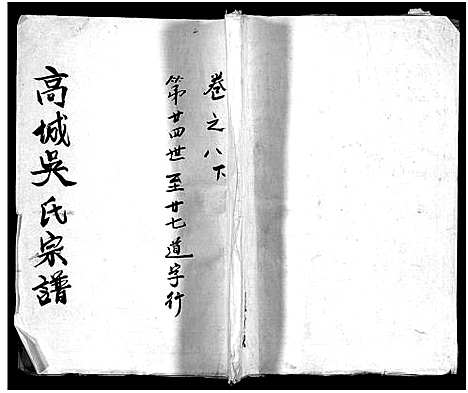 卷之八下
第廿四世至廿七道字行
高城吳氏宗譜